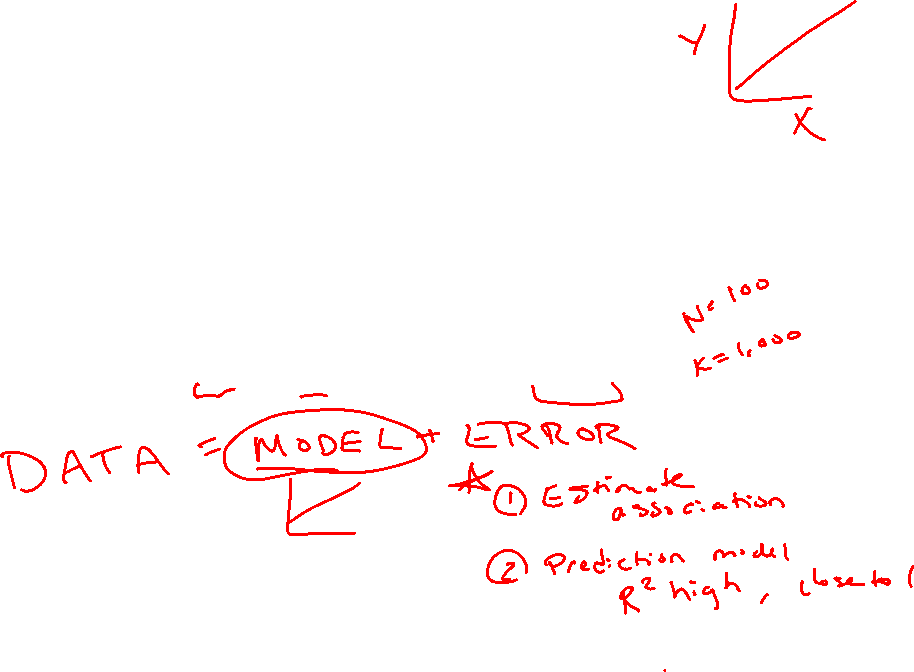 Y
X
N=100
K=1,000
DATA = MODEL + ERROR
① Estimate
association
② Prediction model
R² high, close to 1